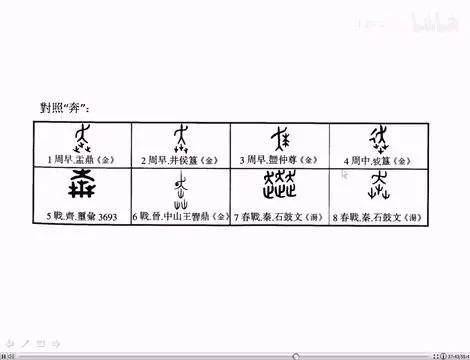 對照“奔”：
1 周早.盂鼎《金》
2 周早.井侯簋《金》
3 周早.𰯼仲尊《金》
4 周中.㦰簋《金》
5 戰.齊.璽彙 3693
6 戰.晉.中山王響鼎《金》
7 春戰.秦.石鼓文《湯》
8 春戰.秦.石鼓文《湯》